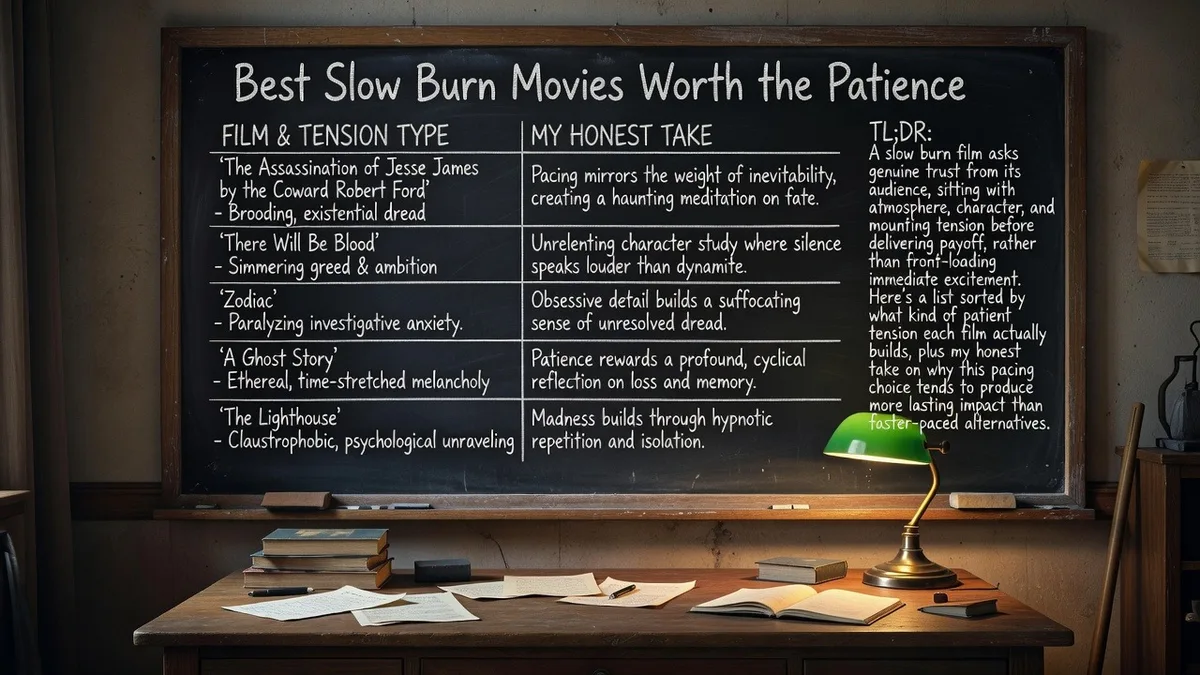 Best Slow Burn Movies Worth the Patience
FILM & TENSION TYPE
MY HONEST TAKE
‘The Assassination of Jesse James
by the Coward Robert Ford’
- Brooding, existential dread
Pacing mirrors the weight of inevitability,
creating a haunting meditation on fate.
‘There Will Be Blood’
- Simmering greed & ambition
Unrelenting character study where silence
speaks louder than dynamite.
‘Zodiac’
- Paralyzing investigative anxiety.
Obsessive detail builds a suffocating
sense of unresolved dread.
‘A Ghost Story’
- Ethereal, time-stretched melancholy
Patience rewards a profound, cyclical
reflection on loss and memory.
‘The Lighthouse’
- Claustrophobic, psychological unraveling
Madness builds through hypnotic
repetition and isolation.
TL;DR:
A slow burn film asks
genuine trust from its
audience, sitting with
atmosphere, character, and
mounting tension before
delivering payoff, rather
than front-loading
immediate excitement.
Here's a list sorted by
what kind of patient
tension each film actually
builds, plus my honest
take on why this pacing
choice tends to produce
more lasting impact than
faster-paced alternatives.